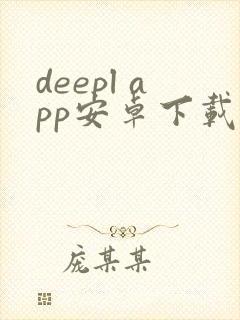 deepl a
pp安卓下載
庞某某